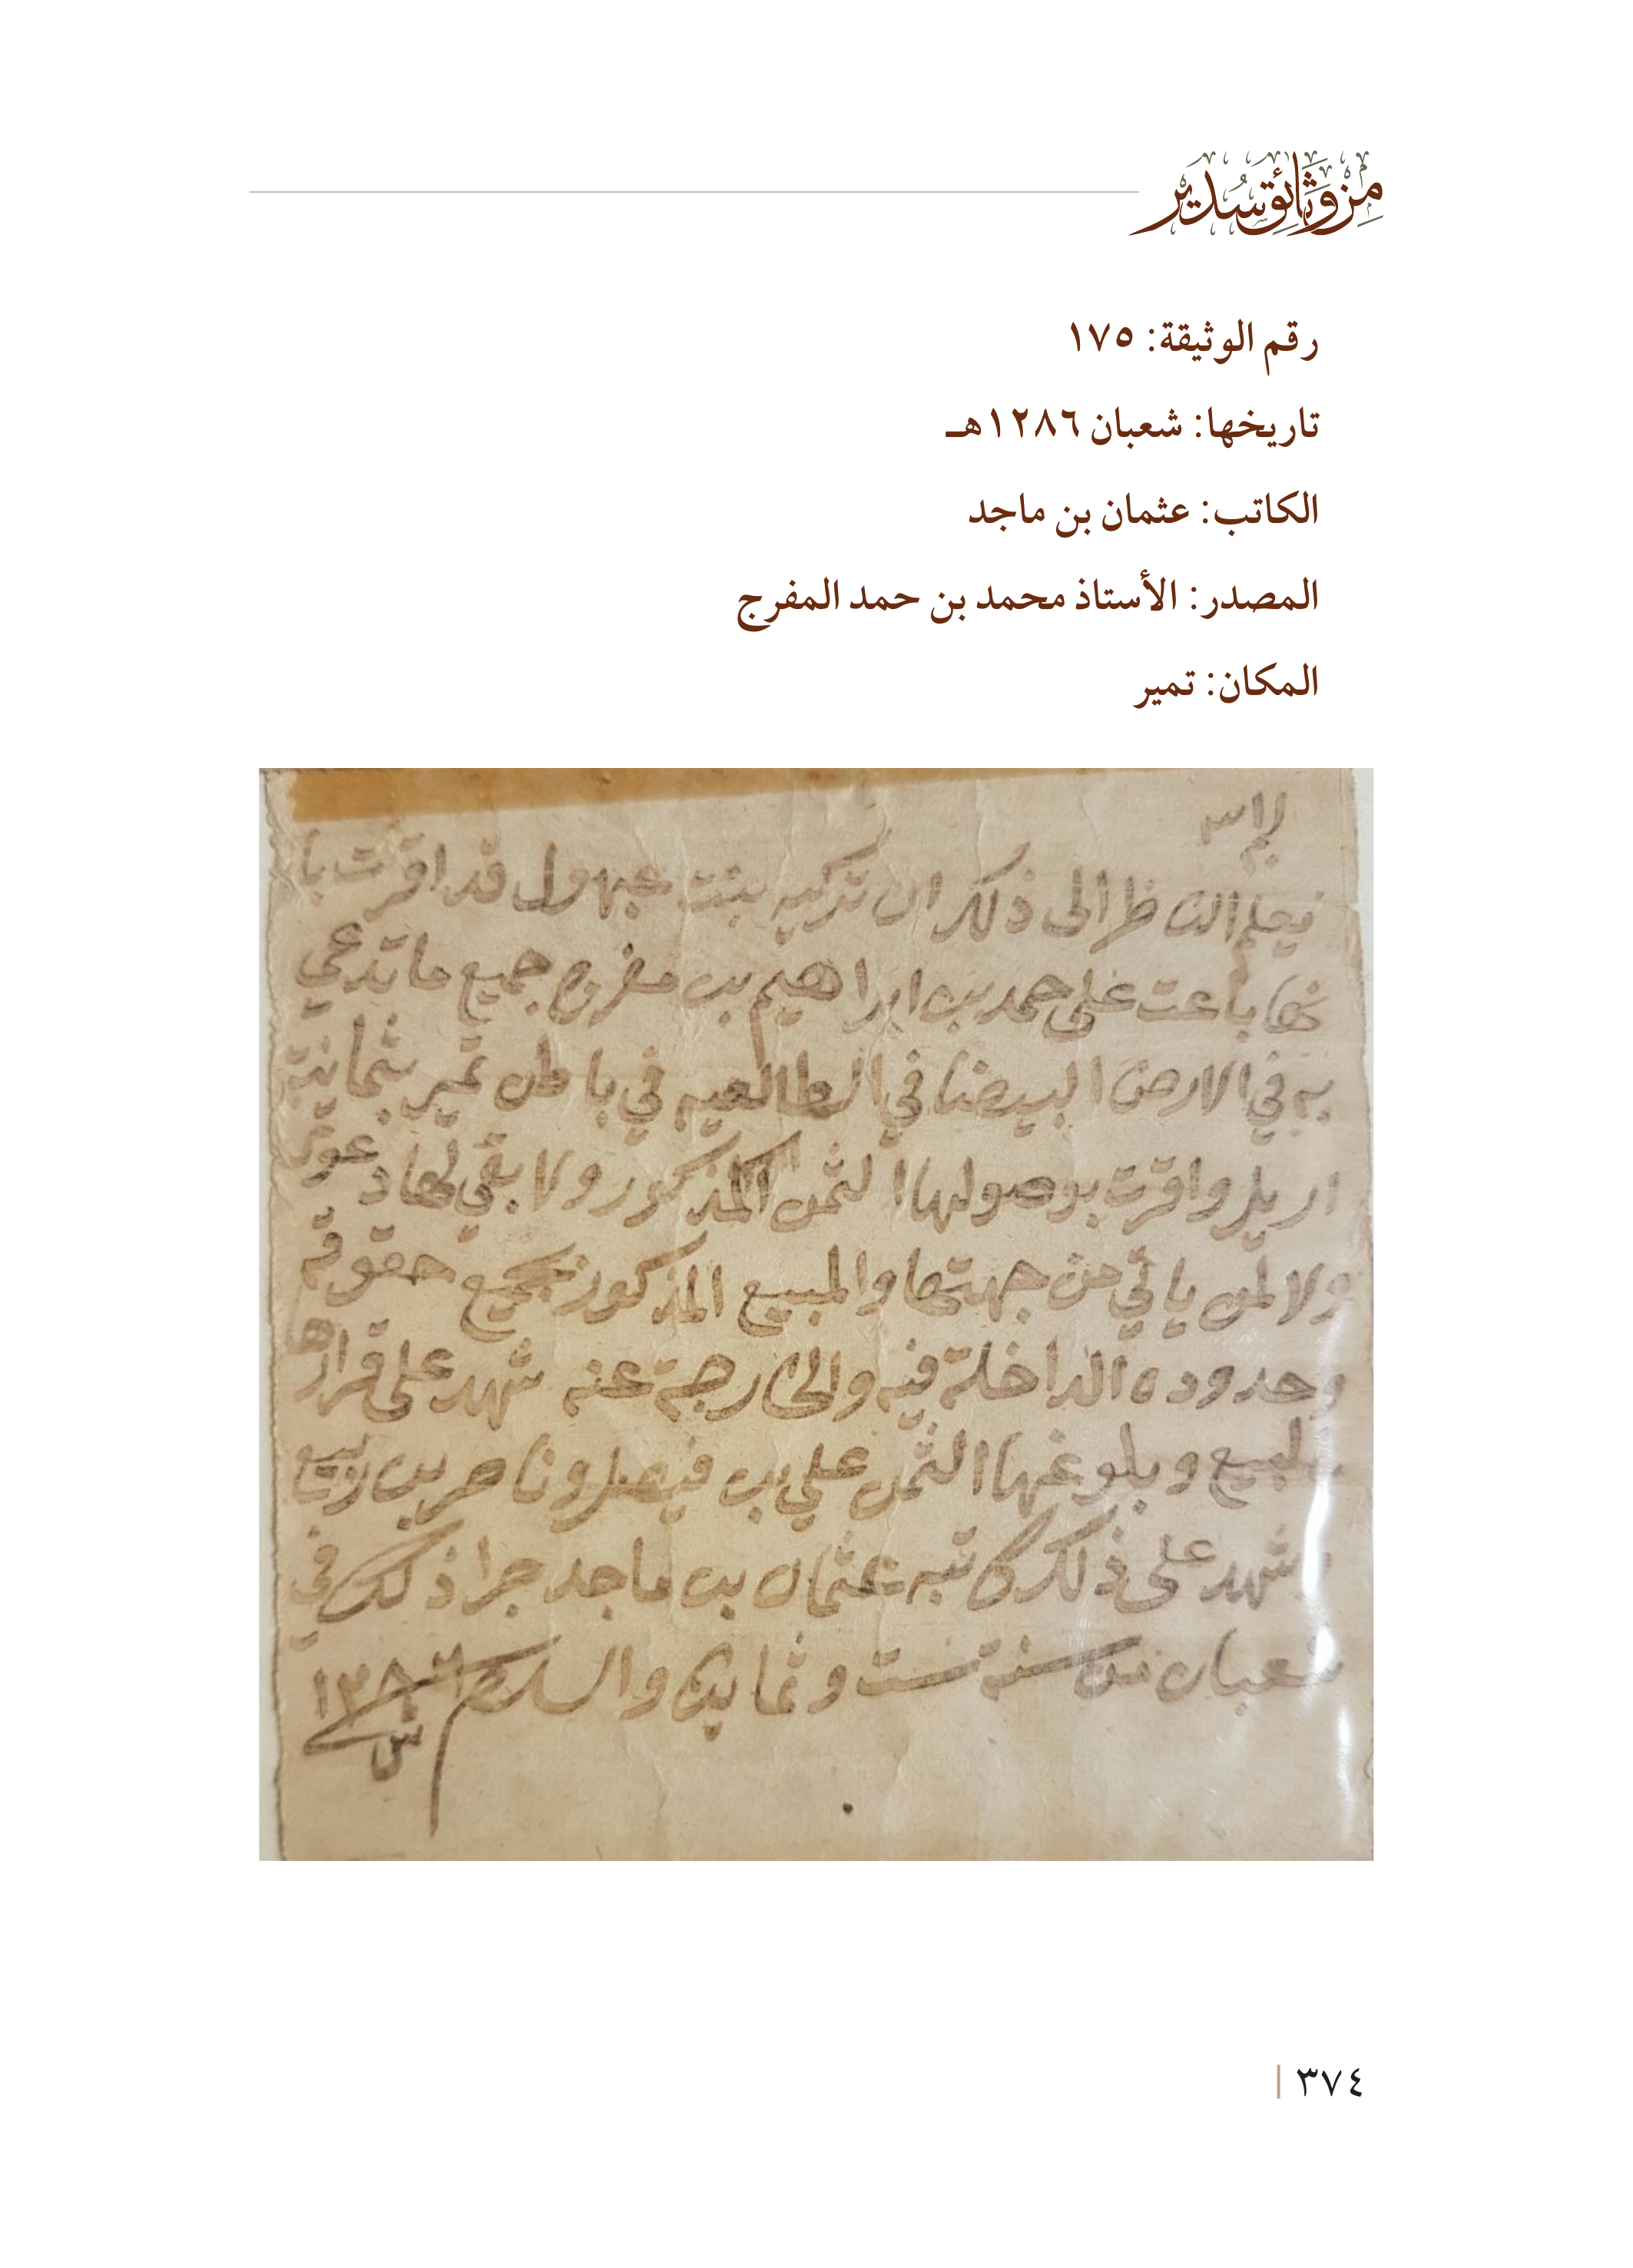 من وثائق سدير
رقم الوثيقة: ١٧٥
تاريخها: شعبان ١٢٨٦هـ
الكاتب: عثمان بن ماجد
المصدر: الأستاذ محمد بن حمد المفرج
المكان: تمير
يعلم الناظر الى ذلك ان تركيه بنت قد اقرت با
نها باعت على حمد بن ابراهيم بن مفرج جميع ما تدعي
به في الارض البيضا في الطالعيه في باطن تمير بثمانية
اريل واقرت بوصولها الثمن المذكور ولا بقي لها دعوى
ولا لمن يأتي من جهتها والمبيع المذكور بجميع حقوقه
وحدوده الداخلة فيه والخارجة عنه شهد على قرارها
بلبيع وبلوغها الثمن علي بن فيصل وناصر بن ربيع
وشهد على ذلك كاتبه عثمان بن ماجد جرا ذلك في
شعبان من سنة ست وثمانين والسلام ١٢٨٦
٣٧٤